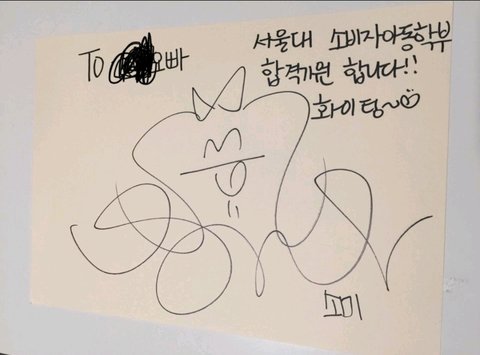 TO 오빠
서울대 소비자아동학부
합격기원 합니다!!
화이팅~
소미